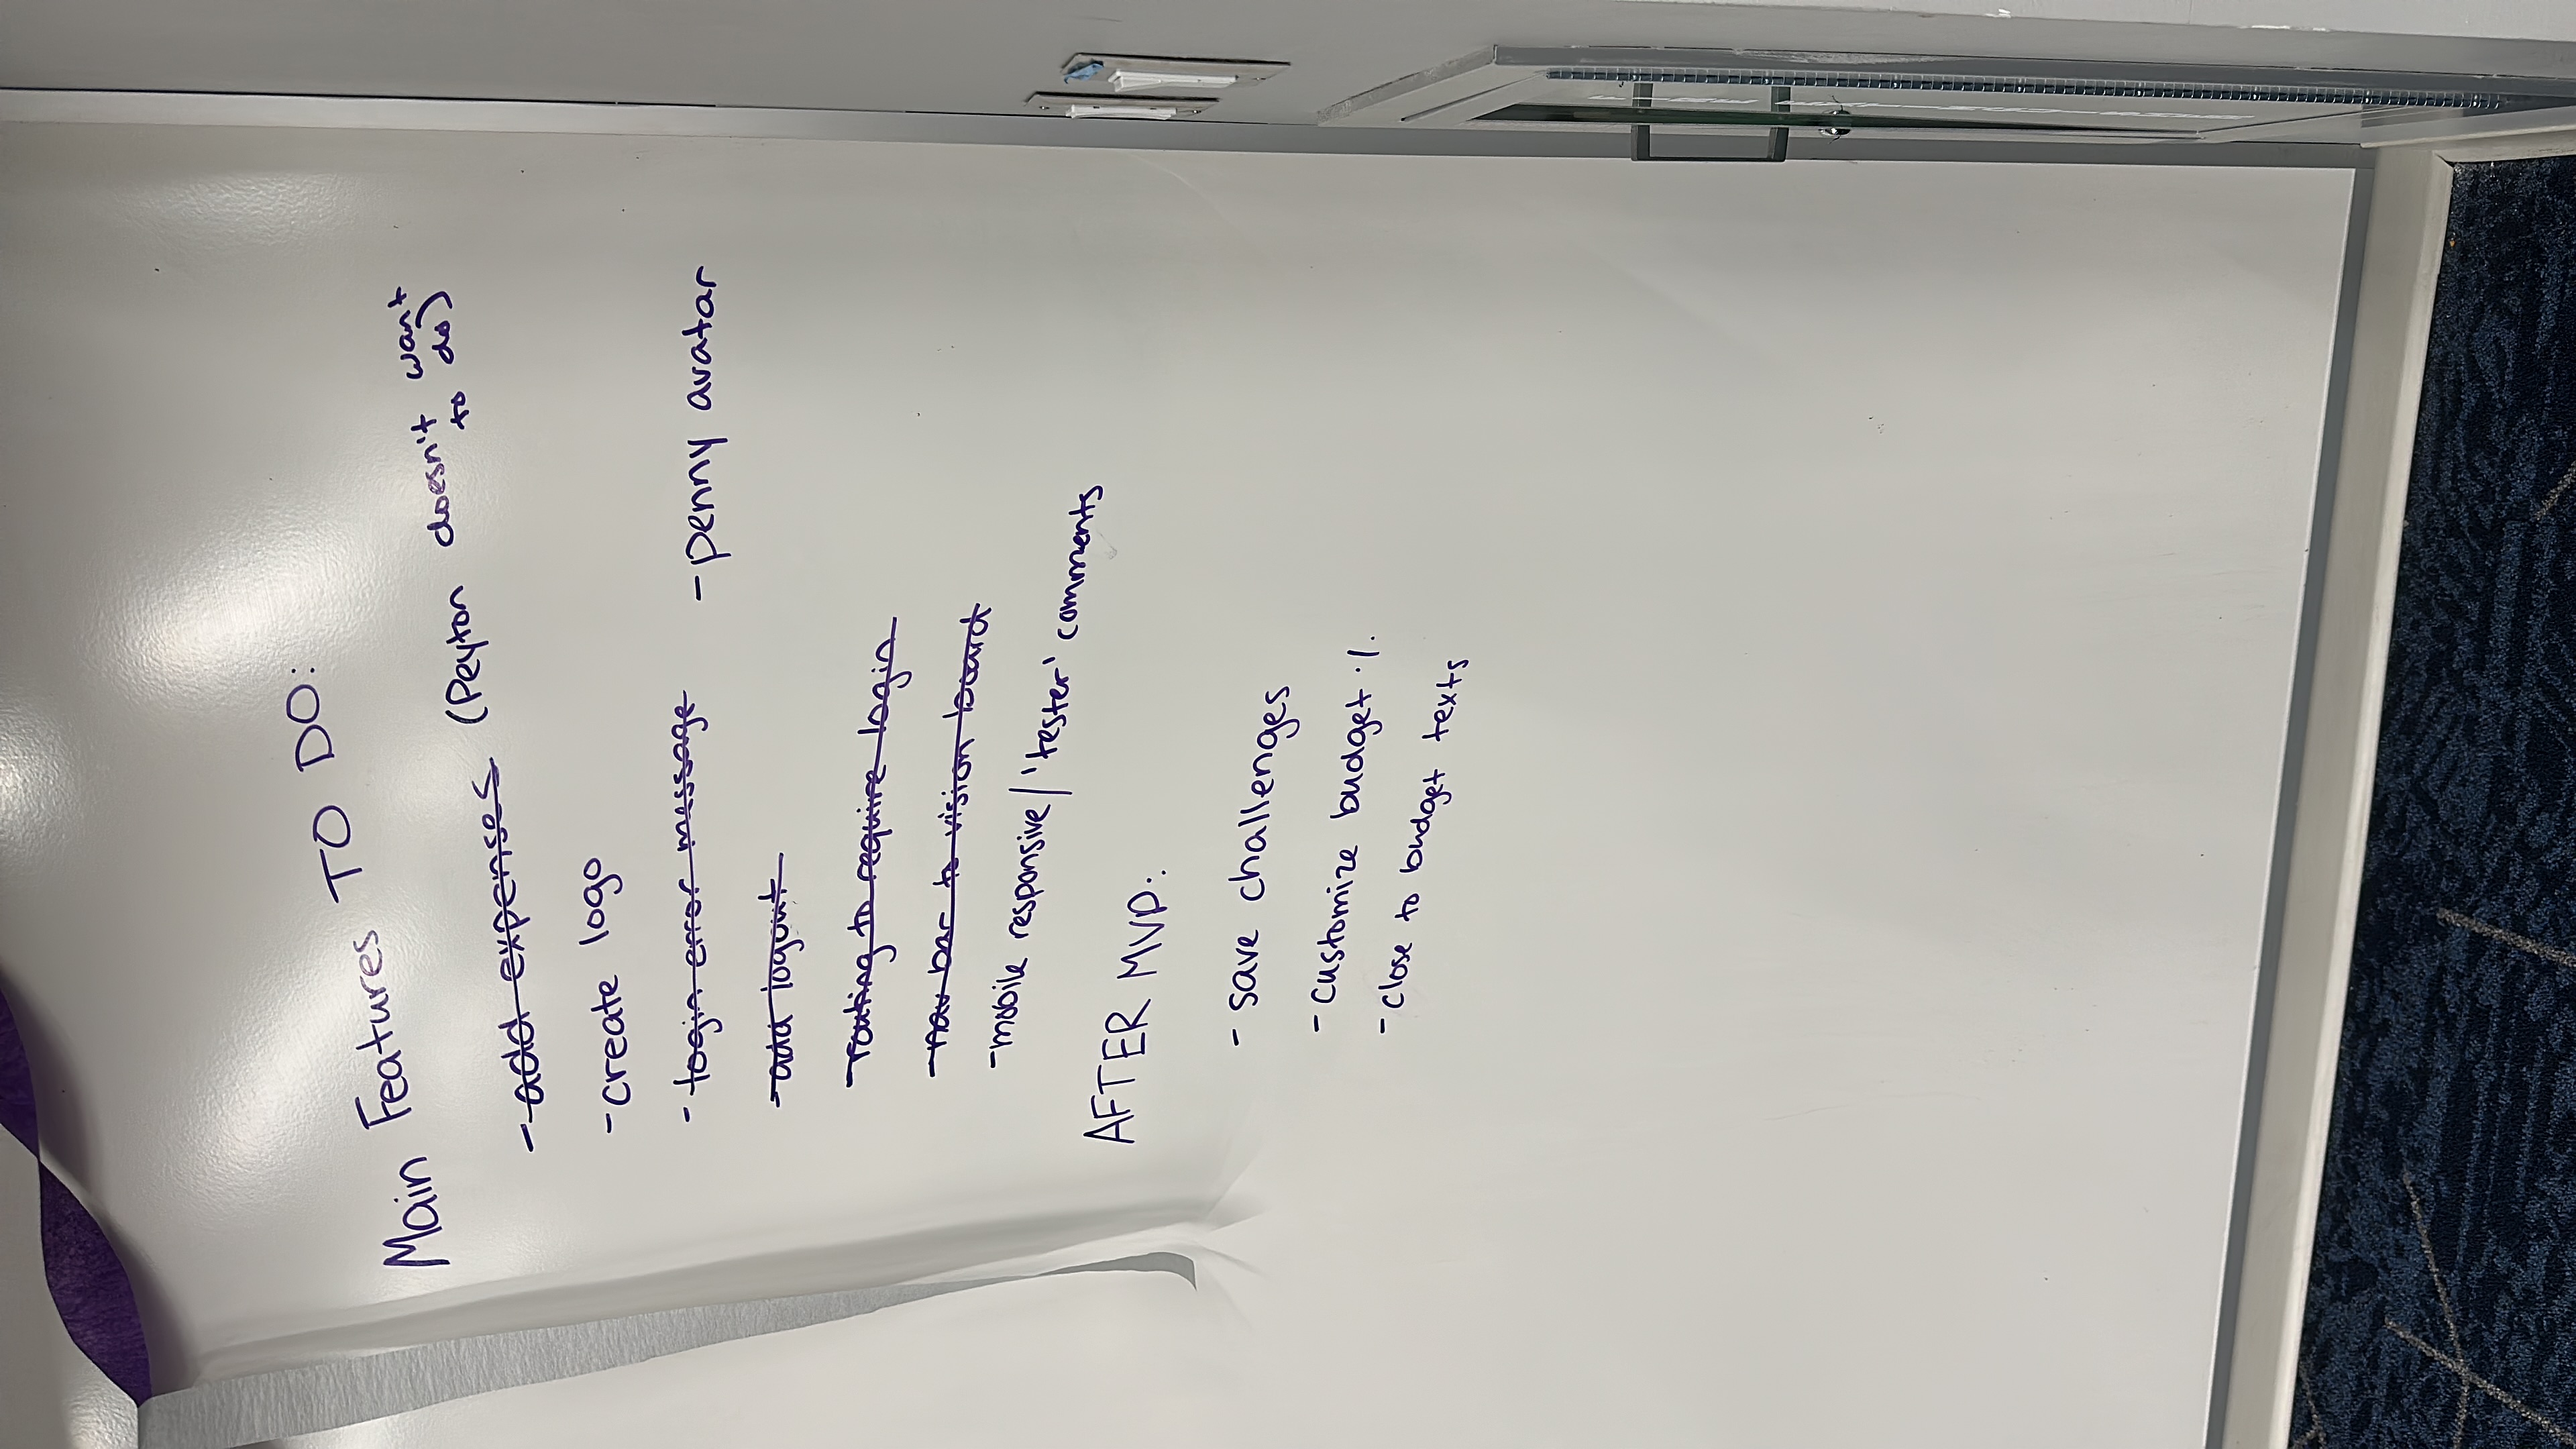 Main Features TO DO:
- add expenses (Peyton doesn't want
to do)
- create logo
- login error message - penny avatar
- add logout
- routing to require login
- nav bar to vision board
- mobile responsive / 'tester' comments
AFTER MVP:
- save challenges
- customize budget %
- close to budget texts